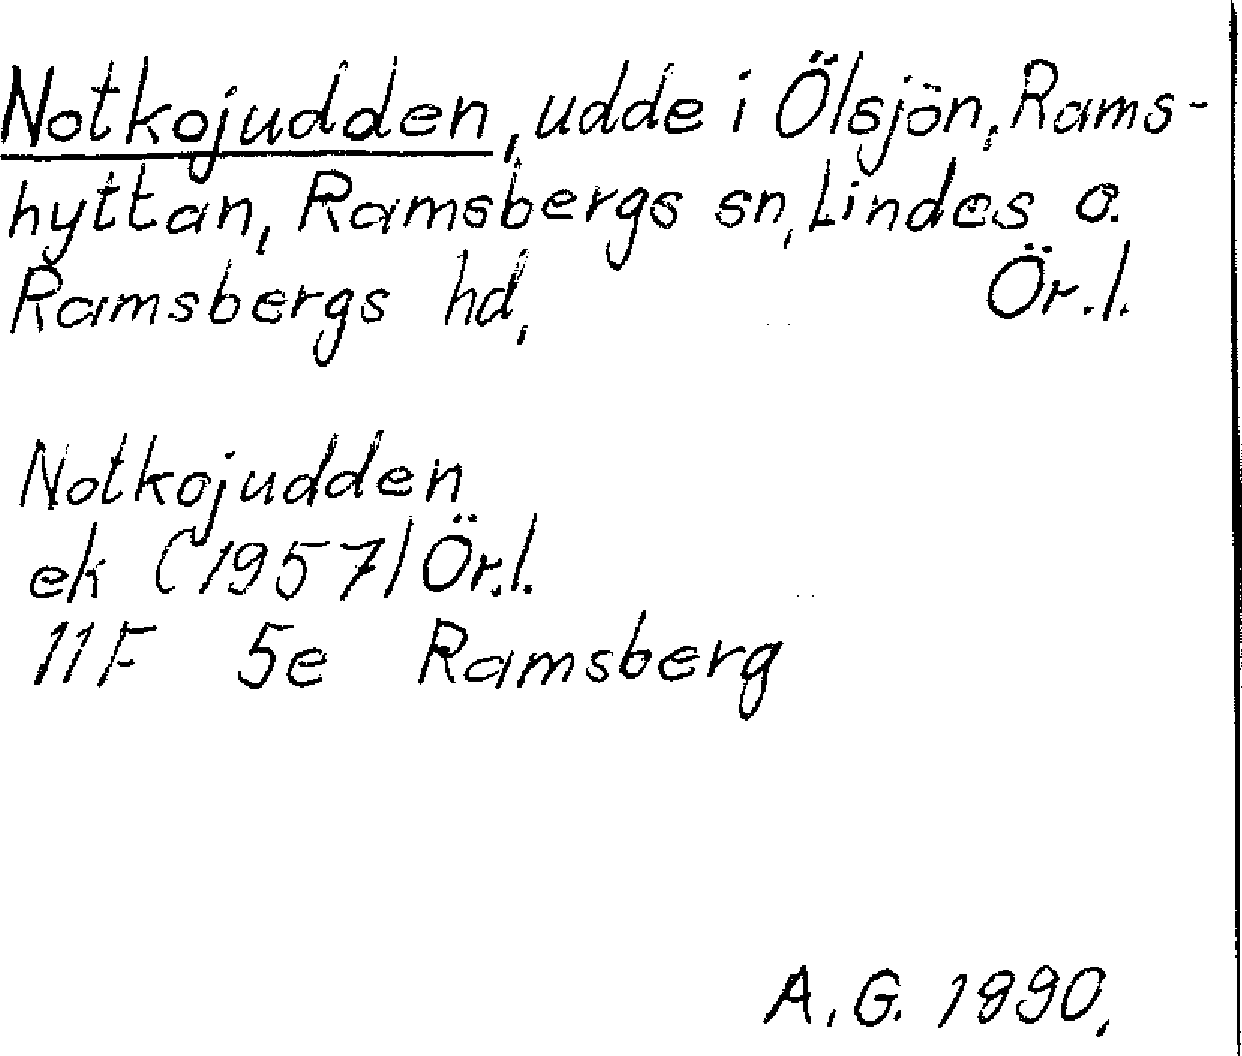 Notkojudden, udde i Ölsjön, Rams-
hyttan, Ramsbergs sn, Lindes o.
Ramsbergs hd, Ör.l.
Notkojudden
ek (1957) Ör.l.
11F 5e Ramsberg
A.G. 1990.